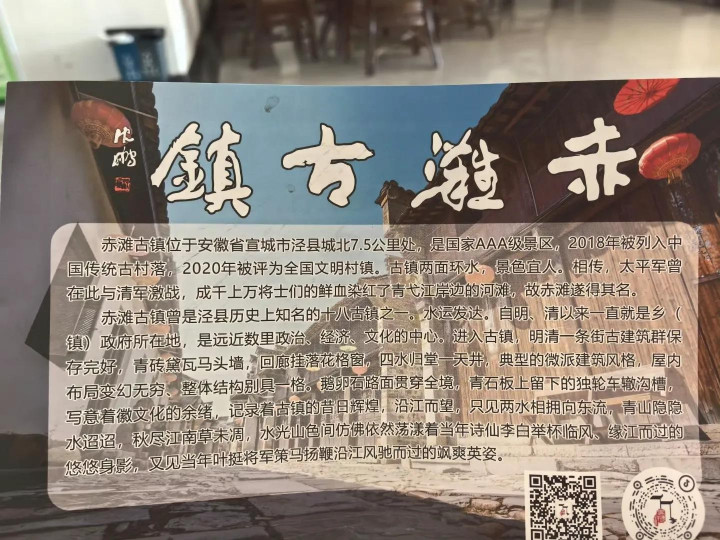 赤灘古鎮
沈鹏
赤滩古镇位于安徽省宣城市泾县城北7.5公里处，是国家AAA级景区，2018年被列入中
国传统古村落，2020年被评为全国文明村镇。古镇两面环水，景色宜人。相传，太平军曾
在此与清军激战，成千上万将士们的鲜血染红了青弋江岸边的河滩，故赤滩遂得其名。
赤滩古镇曾是泾县历史上知名的十八古镇之一。水运发达。自明、清以来一直就是乡（
镇）政府所在地，是远近数里政治、经济、文化的中心。进入古镇，明清一条街古建筑群保
存完好，青砖黛瓦马头墙，回廊挂落花格窗，四水归堂一天井，典型的微派建筑风格，屋内
布局变幻无穷、整体结构别具一格。鹅卵石路面贯穿全境，青石板上留下的独轮车辙沟槽，
写意着徽文化的余绪，记录着古镇的昔日辉煌，沿江而望，只见两水相拥向东流，青山隐隐
水迢迢，秋尽江南草未凋，水光山色间仿佛依然荡漾着当年诗仙李白举杯临风、缘江而过的
悠悠身影，又见当年叶挺将军策马扬鞭沿江风驰而过的飒爽英姿。